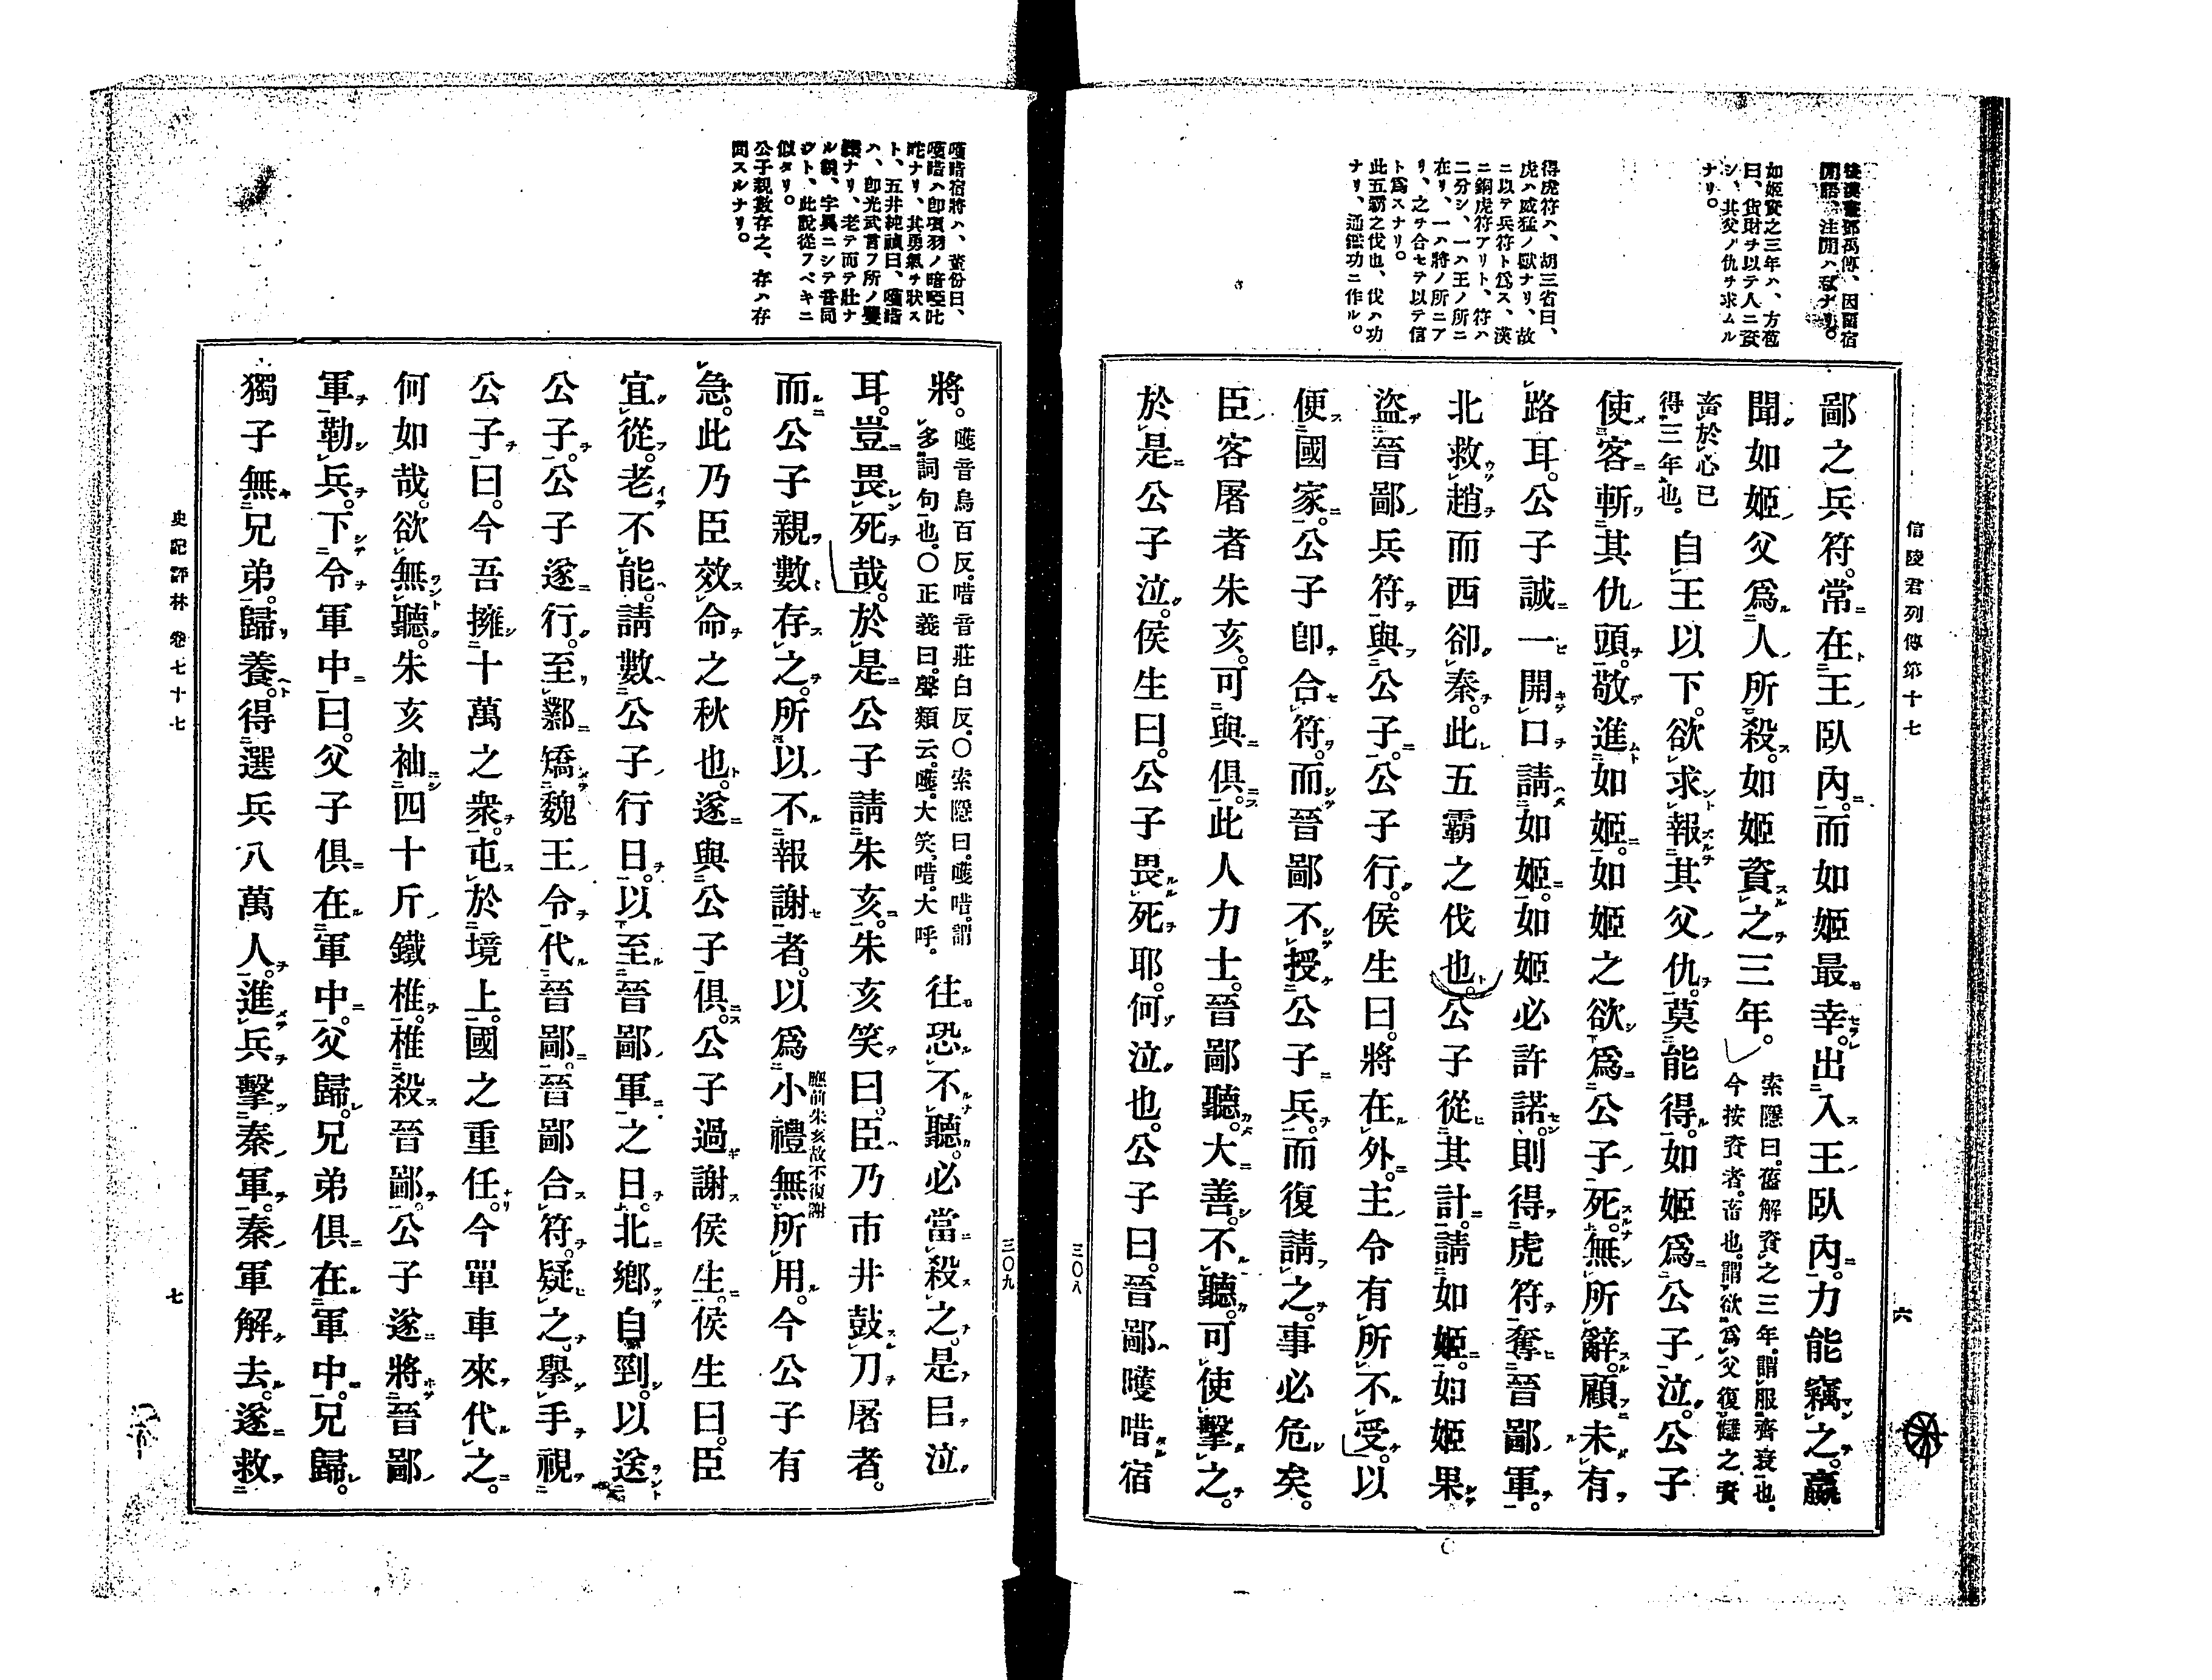 信陵君列傳第十七
六
三〇八
如姬資之三年ハ、方苞
曰、貨財ヲ以テ人ニ資
シ、其父ノ仇ヲ求ムル
ナリ。
得虎符ハ、胡三省曰、
虎ハ威猛ノ獸ナリ、故
ニ以テ兵符ト爲ス、漢
ニ銅虎符アリト、符ハ
二分シ、一ハ王ノ所ニ
在リ、一ハ將ノ所ニア
リ、之ヲ合セテ以テ信
ト爲スナリ。
此五霸之伐也、伐ハ功
ナリ、通鑑功ニ作ル。
鄙之兵符。常在王臥內。而如姬最幸。出入王臥內。力能竊之。嬴
聞如姬父爲人所殺。如姬資之三年。索隱曰。舊解資之三年。謂服齊衰也。今按資者。畜也。謂欲爲父復讎之資
畜於心已得三年也。自王以下。欲求報其父仇。莫能得。如姬爲公子泣。公子
使客斬其仇頭。敬進如姬。如姬之欲爲公子死。無所辭。顧未有
路耳。公子誠一開口請如姬。如姬必許諾。則得虎符奪晉鄙軍。
北救趙而西卻秦。此五霸之伐也。公子從其計。請如姬。如姬果
盜晉鄙兵符與公子。公子行。侯生曰。將在外。主令有所不受。以
便國家。公子卽合符。而晉鄙不授公子兵。而復請之。事必危矣。
臣客屠者朱亥。可與俱。此人力士。晉鄙聽。大善。不聽。可使擊之。
於是公子泣。侯生曰。公子畏死耶。何泣也。公子曰。晉鄙嚄唶宿
嚄唶宿將ハ、董份曰、
嚄唶ハ卽項羽ノ喑啞叱
咤ナリ、其勇氣ヲ狀ス
ト、五井純禎曰、嚄唶
ハ、卽光武言フ所ノ矍
鑠ナリ、老テ而テ壯ナ
ル貌、字異ニシテ音同
シト、此說從フベキニ
似タリ。
公子親數存之、存ハ存
問スルナリ。
三〇九
將。嚄音烏百反。唶音莊白反。〇索隱曰。嚄唶。謂多詞句也。〇正義曰。聲類云。嚄。大笑。唶。大呼。往恐不聽。必當殺之。是目泣
耳。豈畏死哉。於是公子請朱亥。朱亥笑曰。臣乃市井鼓刀屠者。
而公子親數存之。所以不報謝者。以爲小禮無所用。今公子有
應前朱亥故不復謝
急。此乃臣效命之秋也。遂與公子俱。公子過謝侯生。侯生曰。臣
宜從。老不能。請數公子行日。以至晉鄙軍之日。北鄕自剄。以送
公子。公子遂行。至鄴矯魏王令代晉鄙。晉鄙合符。疑之。擧手視
公子曰。今吾擁十萬之衆。屯於境上。國之重任。今單車來代之。
何如哉。欲無聽。朱亥袖四十斤鐵椎。椎殺晉鄙。公子遂將晉鄙
軍勒兵。下令軍中曰。父子俱在軍中。父歸。兄弟俱在軍中。兄歸。
獨子無兄弟。歸養。得選兵八萬人。進兵擊秦軍。秦軍解去。遂救
史記評林 卷七十七
七